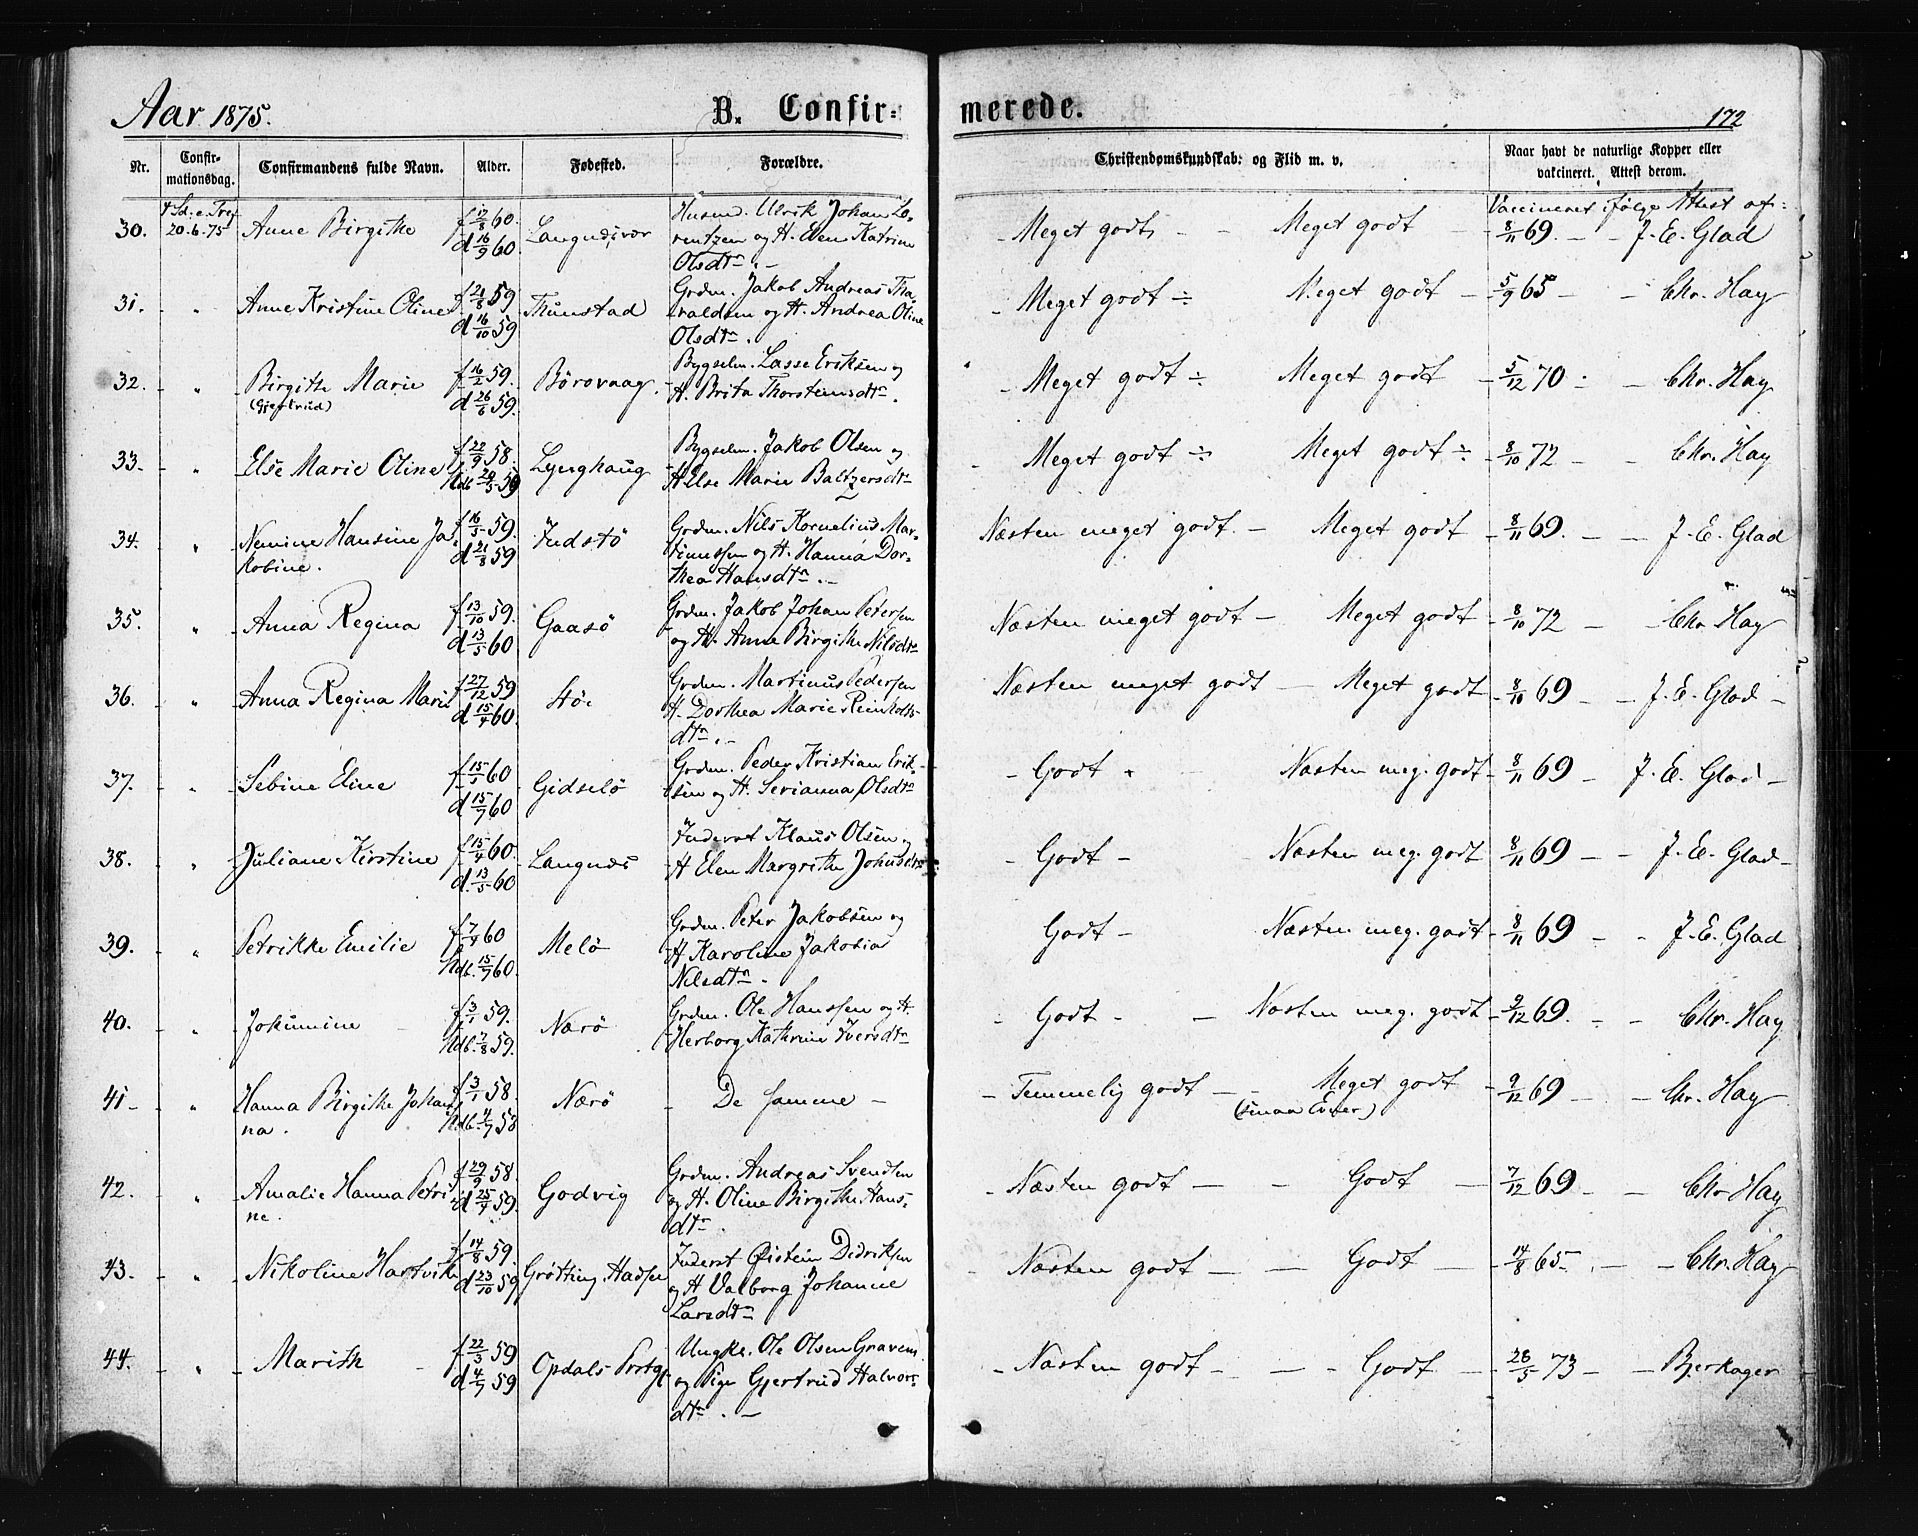 Aar 1875. B. Confirmerede. 172
Nr. Confirmationsdag. Confirmandens fulde Navn. Alder. Fødested. Forældre. Christendomskundskab: og Flid m. v. Naar havt de naturlige Kopper eller vakcineret. Attest derom.
4 Sd. e. Tref. 20-6-75 Vaccineret ifølge Attest af:
30. Anne Birgithe f 17/8 60. d 16/9 60. Husmd. Ulrik Johan Lo-
rentzen og H. Elen Katrine
Olsdtn. - Meget godt - Meget godt 8/11 69. - J. E. Glad
31. " Anne Kristine Oline f 21/8 59 d 16/10 59 Thunstad Grdm. Jakob Andreas Tha-
raldsen og H. Andrea Oline
Olsdtn. - Meget godt ÷ Meget godt - 5/9 65 - Chr. Hay
32. " Birgithe Marie
(Gjertrud) f 16/2 59. d 26/6 59. Børovaag Bygselm. Lasse Eriksen og
H. Brita Thorsteinsdtn. - Meget godt ÷ Meget godt - 5/12 70 - Chr. Hay
33. " Else Marie Oline f 22/9 58. Hdb 29/5 59 Lyenghaug Bygselm. Jakob Olsen og
H Else Marie Baltzersdtn - Meget godt ÷ Meget godt ÷ 8/10 72 - Chr. Hay
34. " Nemine Hansine Ja-
kobine. f 16/5 59. d 21/8 59 Indstø Grdm. Nils Kornelius Mar-
tinussen og H. Hanna Dor-
thea Hansdtn. - Næsten meget godt - Meget godt - 8/11 69. - J. E. Glad
35. " Anna Regina f 13/10 59. d 13/5 60 Gaasø Grdm. Jakob Johan Petersen
og H. Anne Birgithe Nilsdtn Næsten meget godt - Meget godt - 8/10 72 - Chr Hay
36. " Anna Regina Marie f 27/12 59 d 15/4 60. Støt Grdm. Martinus Pedersen
H. Dorthea Marie Reinholts-
dtn. - Næsten meget godt - Meget godt - 8/10 69 - J. E. Glad -
37. " Sebine Eline f 15/1 60 d 15/7 60 Gidselø Grdm. Peder Kristian Erik-
sen og H. Serianna Olsdtn - Godt - Næsten meg. godt - 8/11 69 - J. E. Glad -
38. " Juliane Kirstine f 15/4 60. d. 13/5 60 Langnæs Inderst Klaus Olsen og
H Elen Margrethe Johnsdtn - Godt - Næsten meg. godt 8/11 69 - J. E. Glad -
39. " Petrikke Emilie f 7/4 60 Hdb. 15/7 60. Melø Grdm. Peter Jakobsen og
H. Karoline Jakobia
Nilsdtn. Godt - Næsten meg. godt - 8/11 69 - J. E. Glad
40. " Jokumine f 3/1 59. Hdb. 7/8 59. Nærø Grdm. Ole Hanssen og H.
Herborg Kathrine Iversdtn - Godt - Næsten meg. godt - 9/12 69. - Chr. Hay
41 - " Hanna Birgithe Johan-
na. f 3/1 58. Hdb. 4/7 58 Nærø - De samme - - Temmelig godt - Meget godt
(smaa Evner) - 9/12 69 - Chr. Hay
42. " Amalie Hanna Petri-
ne. f 29/9 58. d 25/4 59. Godvig Grdm. Andreas Svendsen
og H. Oline Birgithe Hans-
dtn. - Næsten godt - Godt - 7/12 69 - Chr Hay
43. " Nikoline Hartvike f 14/8 59. d 23/10 59 Grøtting, Hadsel Inderst Øistein Didriksen
og H Valborg Johanne
Larsdtn Næsten godt - Godt - 14/8 65 - Chr. Hay
44. " Marith f 22/3 59 d 4/7 59 Opdals Prstgj. Ungkr. Ole Olsen Gravem
og Pige Gjertrud Halvors-
dtn. - - Næsten godt - Godt - 28/5 73 - Bjerkager